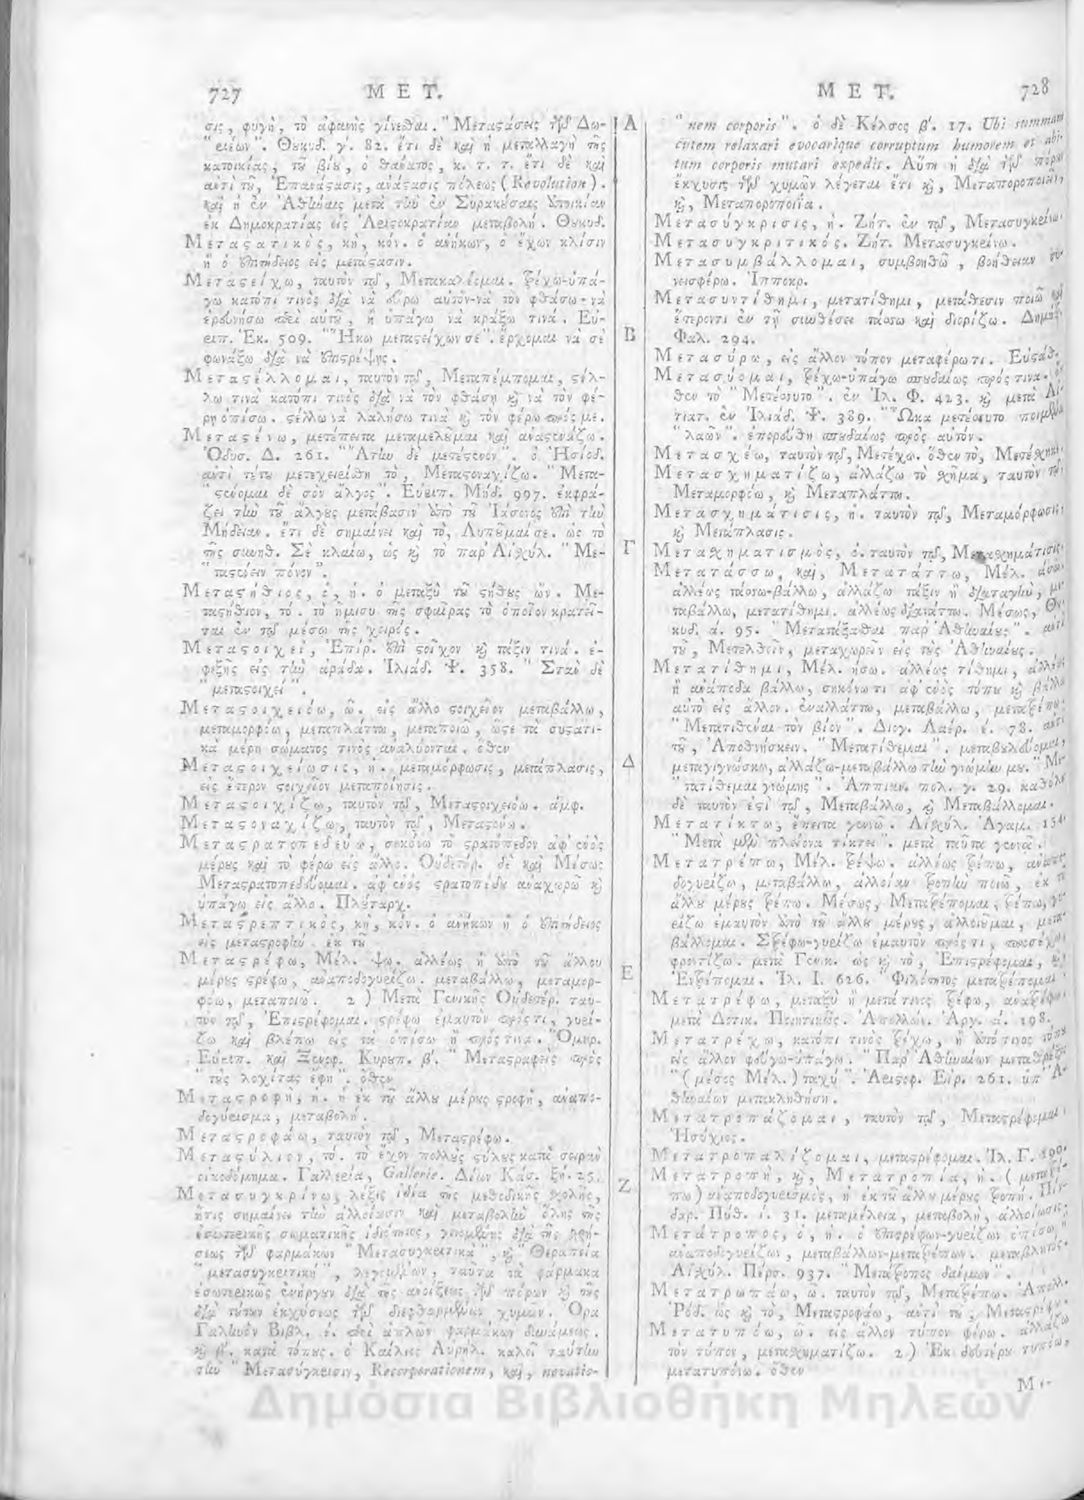 727 ΜΕΤ.
σις, φυγὴ, τὸ ἀφανὴς γίνεσθαι. "Μεταστάσεις τῶν Δω-
"ριέων". Θουκυδ. γ΄. 82. ἔτι δὲ καὶ ἡ μεταλλαγὴ τῆς
κατοικίας, τοῦ βίου, ὁ θάνατος, κ. τ. τ. ἔτι δὲ καὶ
ἀντὶ τοῦ, Ἐπανάστασις, ἀνάστασις πόλεως (Revolution).
καὶ ἡ ἐν Ἀθήναις μετὰ τὴν ἐν Συρακούσαις ἀποικίαν
ἐκ Δημοκρατίας εἰς Ἀριστοκρατίαν μεταβολή. Θουκυδ.
Μεταστατικὸς, κὴ, κόν. ὁ ἀνήκων, ὁ ἔχων κλίσιν
ἢ ὁ ἐπιτήδειος εἰς μετάστασιν.
Μεταστείχω, ταυτὸν τῷ, Μετακαλέομαι. τρέχω-ὑπά-
γω κατόπι τινὸς διὰ νὰ εὕρω αὐτὸν-νὰ τὸν φθάσω-νὰ
ἐρευνήσω περὶ αὐτοῦ, ἢ ὑπάγω νὰ κράξω τινά. Εὐ-
ριπ. Ἑκ. 509. "Ἥκω μεταστείχων σέ". ἔρχομαι νὰ σὲ
φωνάξω διὰ νὰ ἐπιστρέψῃς.
Μεταστέλλομαι, ταυτὸν τῷ, Μεταπέμπομαι, στέλ-
λω τινὰ κατόπι τινὸς διὰ νὰ τὸν φθάσῃ καὶ νὰ τὸν φέ-
ρῃ ὀπίσω. στέλλω νὰ λαλήσω τινὰ καὶ τὸν φέρω πρός με.
Μεταστένω, μετέπειτα μεταμελοῦμαι καὶ ἀναστενάζω.
Ὀδυσ. Δ. 261. "Ἄτην δὲ μετέστενον". ὁ Ἡσίοδ.
ἀντὶ τούτου μετεχειρίσθη τὸ, Μεταστοναχίζω. "Μετα-
"στένομαι δὲ σὸν ἄλγος". Εὐριπ. Μήδ. 997. ἐκφρά-
ζει τὴν τοῦ ἄλγους μετάβασιν ἀπὸ τοῦ Ἰάσονος ἐπὶ τὴν
Μήδειαν. ἔτι δὲ σημαίνει καὶ τὸ, Λυποῦμαί σε. ὡς τὸ
τῆς συνηθ. Σὲ κλαίω, ὡς καὶ τὸ παρ' Αἰσχύλ. "Με-
"ταστένειν πόνον".
Μεταστήθιος, ὁ, ἡ. ὁ μεταξὺ τοῦ στήθους ὤν. Με-
ταστήθιον, τό. τὸ ἥμισυ τῆς σφαίρας τὸ ὁποῖον κρατεῖ-
ται ἐν τῷ μέσῳ τῆς χειρός.
Μεταστοιχεὶ, Ἐπίρ. ἐπὶ στοῖχον καὶ τάξιν τινά. ἐ-
φεξῆς εἰς τὴν ἀράδα. Ἰλιάδ. Ψ. 358. "Στὰν δὲ
"μεταστοιχεί".
Μεταστοιχειόω, ῶ. εἰς ἄλλο στοιχεῖον μεταβάλλω,
μεταμορφόω, μεταπλάττω, μεταποιῶ, ὥστε τὰ συστατι-
κὰ μέρη σώματος τινὸς ἀναλύονται. ὅθεν
Μεταστοιχείωσις, ἡ. μεταμόρφωσις, μετάπλασις,
εἰς ἕτερον στοιχεῖον μεταποίησις.
Μεταστοιχίζω, ταυτὸν τῷ, Μεταστοιχειόω. ἀμφ.
Μεταστοναχίζω, ταυτὸν τῷ, Μεταστένω.
Μεταστρατοπεδεύω, σηκόνω τὸ στρατόπεδον ἀφ' ἑνὸς
μέρους καὶ τὸ φέρω εἰς ἄλλο. Οὐδετέρ. δὲ καὶ Μέσως
Μεταστρατοπεδεύομαι. ἀφ' ἑνὸς στρατοπέδου ἀναχωρῶ καὶ
ὑπάγω εἰς ἄλλο. Πλούταρχ.
Μεταστρεπτικὸς, κὴ, κόν. ὁ ἀνήκων ἢ ὁ ἐπιτήδειος
εἰς μεταστροφήν. ἐκ τοῦ
Μεταστρέφω, Μέλ. ψω. ἀλλέως ἢ ἀπὸ τοῦ ἄλλου
μέρους στρέφω, ἀναποδογυρίζω. μεταβάλλω, μεταμορ-
φόω, μεταποιῶ. 2) Μετὰ Γενικῆς Οὐδετέρ. ταυ-
τὸν τῷ, Ἐπιστρέφομαι. στρέφω ἐμαυτὸν πρός τι, γυρί-
ζω καὶ βλέπω εἰς τὰ ὀπίσω ἢ πρός τινα. Ὅμηρ.
Εὐριπ. καὶ Ξενοφ. Κυροπ. β΄. "Μεταστραφεὶς πρὸς
"τοὺς λοχίτας ἔφη". ὅθεν
Μεταστροφὴ, ἡ. ἡ ἐκ τοῦ ἄλλου μέρους στροφὴ, ἀναπο-
δογύρισμα, μεταβολή.
Μεταστροφάω, ταυτὸν τῷ, Μεταστρέφω.
Μεταστύλιον, τό. τὸ ἔχον πολλοὺς στύλους κατὰ σειρὰν
οἰκοδόμημα. Γαλλερία, Gallerie. Δίων Κάσ. ξή. 25.
Μετασυγκρίνω, λέξις ἰδία τῆς μεθοδικῆς σχολῆς,
ἥτις σημαίνει τὴν ἀλλοίωσιν καὶ μεταβολὴν ὅλης τῆς
ἐσωτερικῆς σωματικῆς ἰδιότητος, γενομένης διὰ τῆς χρή-
σεως τῶν φαρμάκων "Μετασυγκριτικὰ", καὶ "Θεραπεία
"μετασυγκριτικὴ", λεγομένων, ταῦτα τὰ φάρμακα
ἐσωτερικῶς ἐνήργουν διὰ τῆς ἀνοίξεως τῶν πόρων καὶ τῆς
διὰ τούτων ἐκχύσεως τῶν διεφθαρμένων χυμῶν. Ὅρα
Γαληνὸν Βιβλ. έ. περὶ ἁπλῶν φαρμάκων δυνάμεως.
καὶ β΄. κατὰ τόπους. ὁ Καίλιος Αὐρηλ. καλεῖ ταύτην
τὴν "Μετασύγκρισιν, Recorporationem, καὶ, novatio-
A
B
Γ
Δ
E
Z
ΜΕΤ. 728
"nem corporis". ὁ δὲ Κέλσος β΄. 17. Ubi summam
cutem relaxari evocarique corruptum humorem et abi-
tum corporis mutari expedit. Αὕτη ἡ διὰ τῶν πόρων
ἔκχυσις τῶν χυμῶν λέγεται ἔτι καὶ, Μεταποροποίησις,
καὶ, Μεταποροποιΐα.
Μετασύγκρισις, ἡ. Ζήτ. ἐν τῷ, Μετασυγκρίνω.
Μετασυγκριτικός. Ζήτ. Μετασυγκρίνω.
Μετασυμβάλλομαι, συμβοηθῶ, βοήθειαν συ-
νεισφέρω. Ἱπποκρ.
Μετασυντίθημι, μετατίθημι, μετάθεσιν ποιῶ καὶ
ἕτερόν τι ἐν τῇ συνθέσει τάσσω καὶ διορίζω. Δημήτ.
Φαλ. 294.
Μετασύρω, εἰς ἄλλον τόπον μεταφέρω τι. Εὐστάθ.
Μετασύομαι, τρέχω-ὑπάγω σπουδαίως πρός τινα. ὅ-
θεν τὸ "Μετέσσυτο". ἐν Ἰλ. Φ. 423. καὶ μετὰ Αἰ-
τιατ. ἐν Ἰλιάδ. Ψ. 389. "Ὦκα μετέσσυτο ποιμένα
"λαῶν". ἐπορεύθη σπουδαίως πρὸς αὐτόν.
Μετασχέω, ταυτὸν τῷ, Μετέχω. ὅθεν τὸ, Μετέσχηκα.
Μετασχηματίζω, ἀλλάζω τὸ σχῆμα, ταυτὸν τῷ
Μεταμορφόω, καὶ Μεταπλάττω.
Μετασχημάτισις, ἡ. ταυτὸν τῷ, Μεταμόρφωσις
καὶ Μετάπλασις.
Μετασχηματισμὸς, ὁ. ταυτὸν τῷ, Μετασχημάτισις.
Μετατάσσω, καὶ, Μετατάττω, Μέλ. άσω.
ἀλλέως τάσσω-βάλλω, ἀλλάζω τάξιν ἢ διαταγὴν, με-
ταβάλλω, μετατίθημι. ἀλλέως διατάττω. Μέσως, Θου-
κυδ. ά. 95. "Μετατάξασθαι παρ' Ἀθηναίους". ἀντὶ
τοῦ, Μετελθεῖν, μεταχωρεῖν εἰς τοὺς Ἀθηναίους.
Μετατίθημι, Μέλ. ήσω. ἀλλέως τίθημι, ἀλλέως
ἢ ἀνάποδα βάλλω, σηκόνω τι ἀφ' ἑνὸς τόπου καὶ βάλλω
αὐτὸ εἰς ἄλλον. ἐναλλάττω, μεταβάλλω, μετατρέπω.
"Μετατιθέναι τὸν βίον". Διογ. Λαέρ. έ. 78. ἀντὶ
τοῦ, Ἀποθνήσκειν. "Μετατίθεμαι". μεταβουλεύομαι,
μεταγιγνώσκω, ἀλλάζω-μεταβάλλω τὴν γνώμην μου. "Με-
"τατίθεμαι γνώμης". Ἀππιαν. πολ. γ. 29. καθόλου
δὲ ταυτόν ἐστι τῷ, Μεταβάλλω, καὶ Μεταβάλλομαι.
Μετατίκτω, ἔπειτα γεννῶ. Αἰσχύλ. Ἀγαμ. 154
"Μετὰ μὲν πλείονα τίκτει". μετὰ ταῦτα γεννᾷ.
Μετατρέπω, Μέλ. τρέψω. ἀλλέως τρέπω, ἀναπο-
δογυρίζω, μεταβάλλω, ἀλλοίαν τροπὴν ποιῶ, ἐκ τοῦ
ἄλλου μέρους τρέπω. Μέσως, Μετατρέπομαι, τρέπω, γυ-
ρίζω ἐμαυτὸν ἀπὸ τοῦ ἄλλου μέρους, ἀλλοιοῦμαι, μετα-
βάλλομαι. Στρέφω-γυρίζω ἐμαυτὸν πρός τι, προσέχω
φροντίζω. μετὰ Γενικ. ὡς καὶ τὸ, Ἐπιστρέφομαι, καὶ
Ἐντρέπομαι. Ἰλ. Ι. 626. "Φιλότητος μετατρέπομαι
Μετατρέφω, μεταξὺ ἢ μετά τινος τρέφω, ἀνατρέφω.
μετὰ Δοτικ. Ποιητικῶς. Ἀπολλών. Ἀργ. ά. 198.
Μετατρέχω, κατόπι τινὸς τρέχω, ἢ ἀπό τινος τόπου
εἰς ἄλλον φεύγω-ὑπάγω. "Παρ' Ἀθηναίων μεταθρέξει
"(μέσος Μέλ.) ταχύ". Ἀριστοφ. Εἰρ. 261. ὑπ' Ἀ-
θηναίων μετακληθήσῃ.
Μετατροπάζομαι, ταυτὸν τῷ, Μεταστρέφομαι.
Ἡσύχιος.
Μετατροπαλίζομαι, μεταστρέφομαι. Ἰλ. Γ. 190.
Μετατροπὴ, καὶ, Μετατροπία, ἡ. (μετατρέ-
πω) ἀναποδογυρισμὸς, ἢ ἐκ τοῦ ἄλλου μέρους τροπή. Πίν-
δαρ. Πύθ. ί. 31. μεταμέλεια, μεταβολὴ, ἀλλοίωσις.
Μετάτροπος, ὁ, ἡ. ὁ ἐπιστρέφων-γυρίζων ὀπίσω ἢ
ἀναποδογυρίζων, μεταβάλλων-μετατρέπων. μεταβλητός.
Αἰσχύλ. Πέρσ. 937. "Μετάτροπος δαίμων".
Μετατρωπάω, ῶ. ταυτὸν τῷ, Μετατρέπω. Ἀπολλ.
Ῥόδ. ὡς καὶ τὸ, Μεταστροφάω, ἀντὶ τοῦ, Μεταστρέφω.
Μετατυπόω, ῶ. εἰς ἄλλον τύπον φέρω. ἀλλάζω
τὸν τύπον, μετασχηματίζω. 2) Ἐκ δευτέρου τυπόω,
μετατυπόω. ὅθεν
Με-
Δημόσια Βιβλιοθήκη Μηλεών